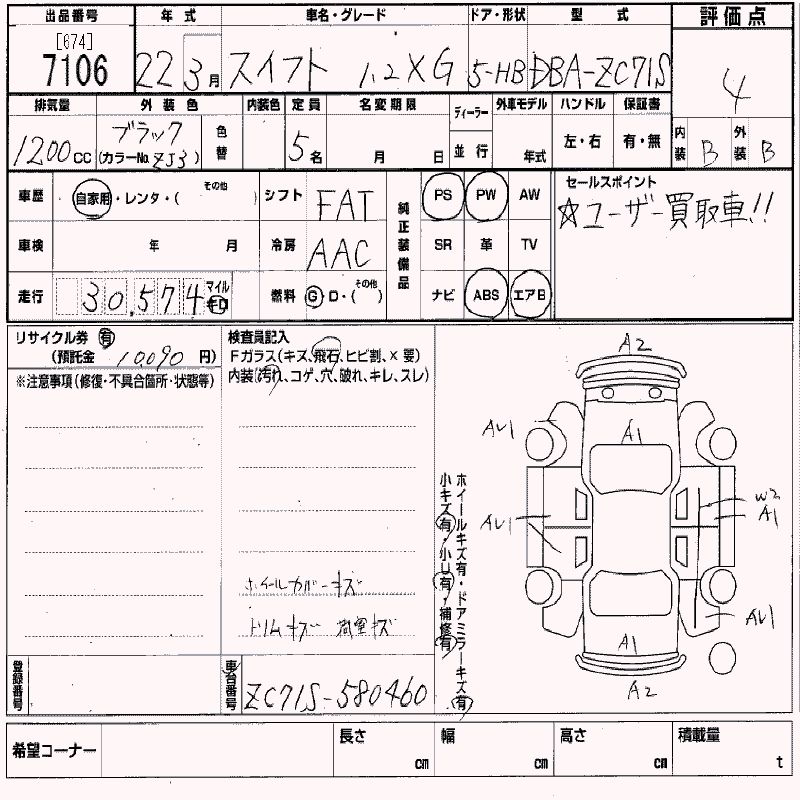 出品番号 年式 車名・グレード ドア・形状 型式 評価点
[674]
7106 22 3月 スイフト 1.2XG 5-HB DBA-ZC71S 4
排気量 外装色 内装色 定員 名変期限 ディーラー 外車モデル ハンドル 保証書
1200cc ブラック (カラーNo.ZJ3) 色替 5名 月 日 並行 年式 左・右 有・無 内装 B 外装 B
車歴 自家用・レンタ・(その他 ) シフト FAT 純正装備品 PS PW AW セールスポイント
☆ユーザー買取車!!
車検 年 月 冷房 AAC SR 革 TV
走行 30,574 マイル キロ 燃料 G D・(その他) ナビ ABS エアB
リサイクル券 有
(預託金 10,090 円)
※注意事項(修復・不具合箇所・状態等)
検査員記入
Fガラス(キズ、飛石、ヒビ割、X要)
内装(汚れ、コゲ、穴、破れ、キレ、スレ)
ホイールカバーキズ
トリムキズ 荷室キズ
ホイールキズ有・ドアミラーキズ有
小キズ有・小U有・補修有
A2
AU1 A1
W2
AU1 A1
AU1
A1
A2
登録番号 車台番号 ZC71S-580460
希望コーナー 長さ cm 幅 cm 高さ cm 積載量 t